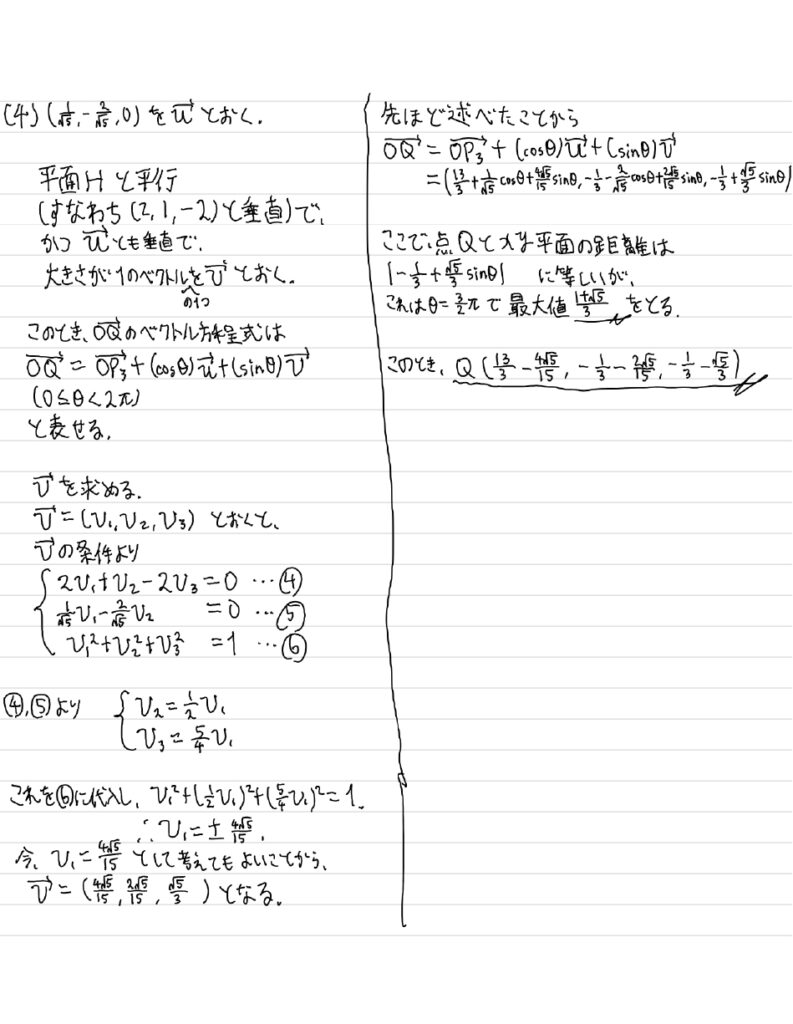 (4) (1/√5, -2/√5, 0) を u→ とおく.
平面H と平行
(すなわち (2, 1, -2) と垂直) で,
かつ u→ とも垂直で,
大きさが1のベクトルの1つを v→ とおく.
このとき, OQ→ のベクトル方程式は
OQ→ = OP₃→ + (cosθ)u→ + (sinθ)v→
(0≦θ<2π)
と表せる.
v→ を求める.
v→ = (v₁, v₂, v₃) とおくと,
v→ の条件より
2v₁+v₂-2v₃=0 …④
1/√5 v₁ - 2/√5 v₂ =0 …⑤
v₁²+v₂²+v₃² =1 …⑥
④,⑤より { v₂=1/2 v₁
v₃=5/4 v₁
これを⑥に代入し, v₁²+(1/2 v₁)²+(5/4 v₁)²=1.
∴ v₁=± 4√5/15.
今, v₁=4√5/15 として考えてもよいことから,
v→ = (4√5/15, 2√5/15, √5/3) となる.
先ほど述べたことから
OQ→ = OP₃→ + (cosθ)u→ + (sinθ)v→
= (13/3 + 1/√5 cosθ + 4√5/15 sinθ, -1/3 - 2/√5 cosθ + 2√5/15 sinθ, -1/3 + √5/3 sinθ)
ここで, 点Qとxy平面の距離は
|-1/3 + √5/3 sinθ| に等しいが,
これは θ=3/2π で 最大値 (1+√5)/3 をとる.
このとき, Q (13/3 - 4√5/15, -1/3 - 2√5/15, -1/3 - √5/3)